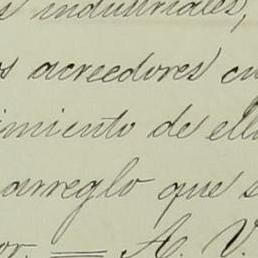 s industriales,
os acreedores cu
imiento de ell
arreglo que s
or. = A. V.